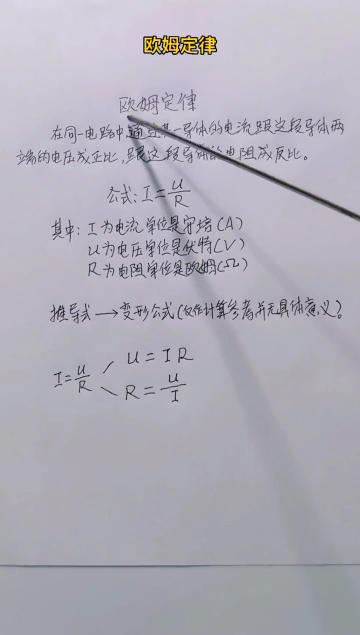 欧姆定律
欧姆定律
在同一电路中,通过某一导体的电流跟这段导体两
端的电压成正比,跟这段导体的电阻成反比。
公式:I=U/R
其中:I为电流单位是安培(A)
U为电压单位是伏特(V)
R为电阻单位是欧姆(Ω)
推导式→变形公式(仅作计算参考并无具体意义)。
I=U/R
U=IR
R=U/I